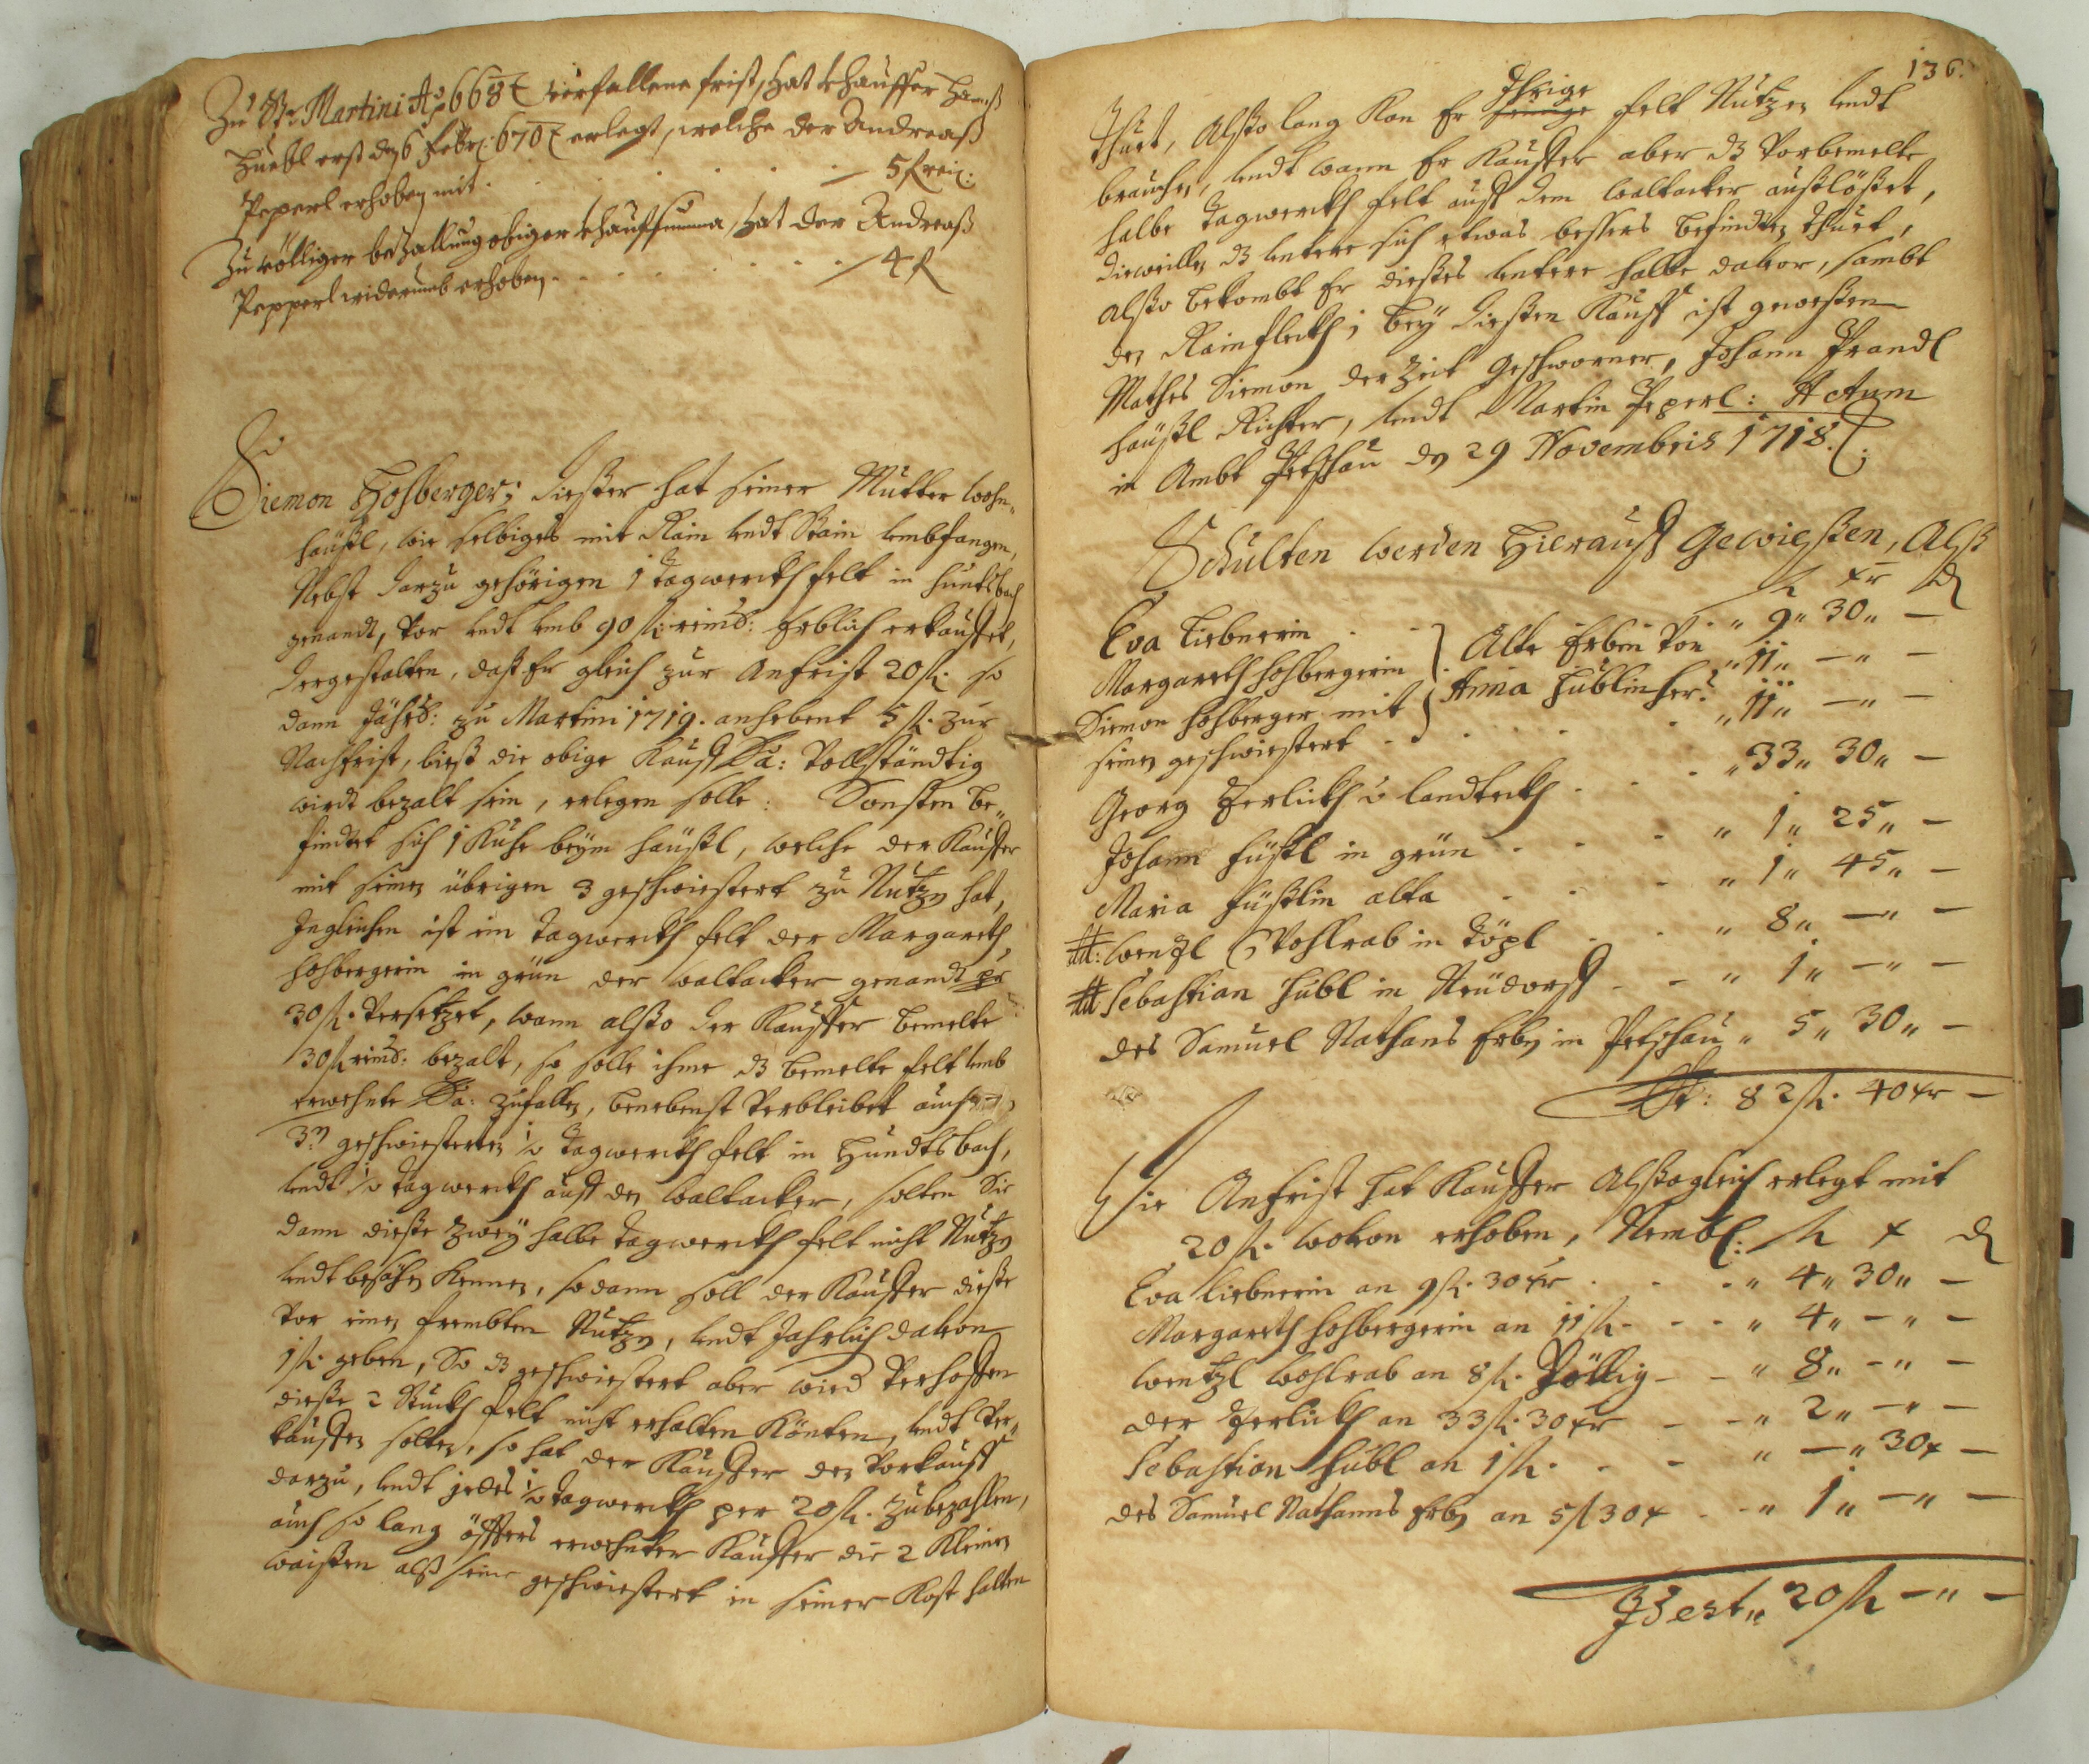 Zu St: Martini Aõ 668 verfallene frist, hat khauffer Hanß
Huebl erst den 6 Febr: 670 erlegt, welche der Andreaß
Peperl erhoben mit . . . . . — 5 f rein:
Zu völliger bezallung obiger khauffsumma, hat der Andreaß
Pepperl widerumb erhoben . . . . . — 4 f
Siemon Hoßberger; dießer hat seiner Mutter wohn„
häußl, wie selbiges mit Rain undt Stain umbfangen,
Nebst darzu gehörigen 1 tagwerckh felt in Hundtsbach
genandt, vor undt umb 90 fl: reins: Erblich erkauffet,
dergestalten, daß Er gleich zur Anfrist 20 fl. so
dann Jährl: zu Martini 1719. anhebent 5 fl. zur
Nachfrist, bieß die obige Kauff Sa: vollständtig
wirdt bezalt sein, erlegen solle: Sonsten be„
findtet sich 1 Kuhe beym häußl, welche der Kauffer
mit seinen übrigen 3 geschwiestert zu Nutzen hat,
Ingleichen ist ein Tagwerckh felt der Margareth
Hoßbergerin in grün der waltacker genandt pr
30 fl. versetzet, wann alßo der Kauffer bemelte
30 fl reins: bezalt, so solle ihme dz bemelte felt umb
erwehnte Sa: zufallen, benebenst verbleibet auch
3n geschwiesterten ½ tagwerckh felt in Hundtsbach,
undt ½ tagwerckh auff den waltacker, solten Sie
dann dieße zwey halbe tagwerckh felt nicht Nutzen
undt besähen kennen, so dann soll der Kauffer dieße
vor einen frembten Nutzen, undt Jahrlich davon
1 fl. geben, So dz geschwiestert aber wird verhoffen
dieße 2 Stuckh felt nicht erhalten könten, undt ver„
kauffen solten, so hat der Kauffer den vorkauff
darzu, undt jedes ½ tagwerckh per 20 fl. zubezahlen,
auch so lang öffters erwehnter Kauffer die 2 kleinen
waißen alß seine geschwiestert in seiner Kost halten
136.
thuet, alßo lang kan Er seinige Ihrige felt Nutzen undt
brauchen, undt wann Er Kauffer aber dz vorbemelte
halbe tagwerckh felt auff dem waltacker außlößet,
dieweillen dz untere sich etwas bessers befindten thuet,
alßo bekombt Er dießes untere halbe davor, sambt
den Rainfleckh; bey dießen Kauff ist geweßen
Mathes Siemon derzeit geschworner, Johann Prandl
häußl Richter, undt Martin Peperl: Actum
in Ambt Petschau den 29 Novembris 1718.
Schulten werden Hierauff gewießen, alß
fl xr d
Eva Liebnerin . . „ 9„ 30„ —
Margareth Hoßbergerin } Alte Erben von „ 11„ —„ —
Siemon Hoßberger mit } Anna Hüblin her: „ 11„ —„ —
seinen geschwiestert . . .
Georg Zerlickh in landteckh . . . „ 33„ 30„ —
Johann Füßl in grün . . . „ 1„ 25„ —
Maria Füßlin alta . . . „ 1„ 45„ —
Wenzl Wohlrab in Töpl . . „ 8„ —„ —
Sebastian Hübl in Neüdorff . - „ 1„ —„ —
des Samuel Nathans Erben in Petschau „ 5„ 30„ —
St: 82 fl. 40 xr —
Die Anfrist hat Kauffer alßogleich erlegt mit
20 fl. wovon erhoben, Nembl: fl x d
Eva Liebnerin an 9 fl. 30 xr . . „ 4„ 30„ —
Margareth Hoßbergerin an 11 fl. - . - „ 4„ —„ —
Wentzl Wohlrab an 8 fl. Völlig - - „ 8„ —„ —
der Zerlickh an 33 fl. 30 xr - - „ 2„ —„ —
Sebastian Hübl an 1 fl. . . - „ —„ 30x —
des Samuel Nathanns Erben an 5 fl 30 x . - „ 1„ —„ —
Best„ 20 fl —„ —